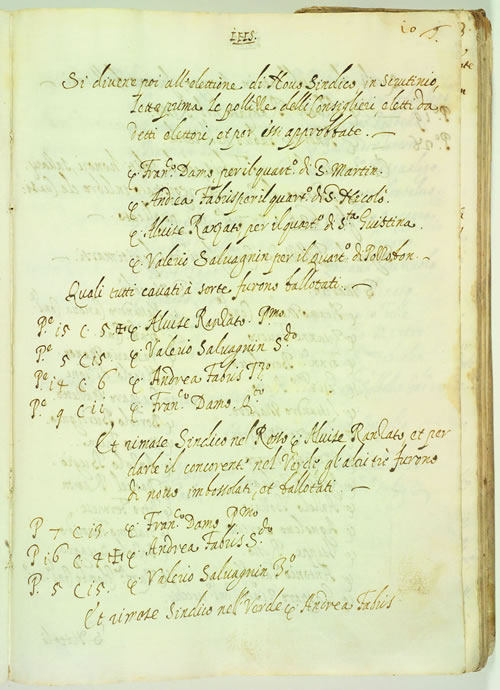 IHS.
Si divene poi all'elettione di Novo Sindico in Scrutinio,
letta prima le polizze delli Consiglieri eletti da
detti elettori, et poi approbbate.
Franc.o Damo, per il quart.o di S. Martin.
Andrea Fabris per il quart.o di S. Nicolò.
Alvise Ranzato per il quart.o di S.ta Giustina.
Valerio Salvagnin per il quart.o di
Quali tutti cavati à sorte furono ballotati.
P.e 15 C. 5 Alvise Ranzato. P.mo
P.e 5 C 15 Valerio Salvagnin S.do
P.e 14 C 6 Andrea Fabris
P.e 9 C 11 Franc.o Damo.
Et rimase Sindico nel Rosso Alvise Ranzato, et per
darle il concorente nel Verde gl'altri trè furono
di novo imbossolati, et ballotati.
P 7 C 13 Franc.o Damo P.mo
P 16 C 4 Andrea Fabris S.do
P. 5 C 15. Valerio Salvagnin 3.o
Et rimase Sindico nell Verde Andrea Fabris